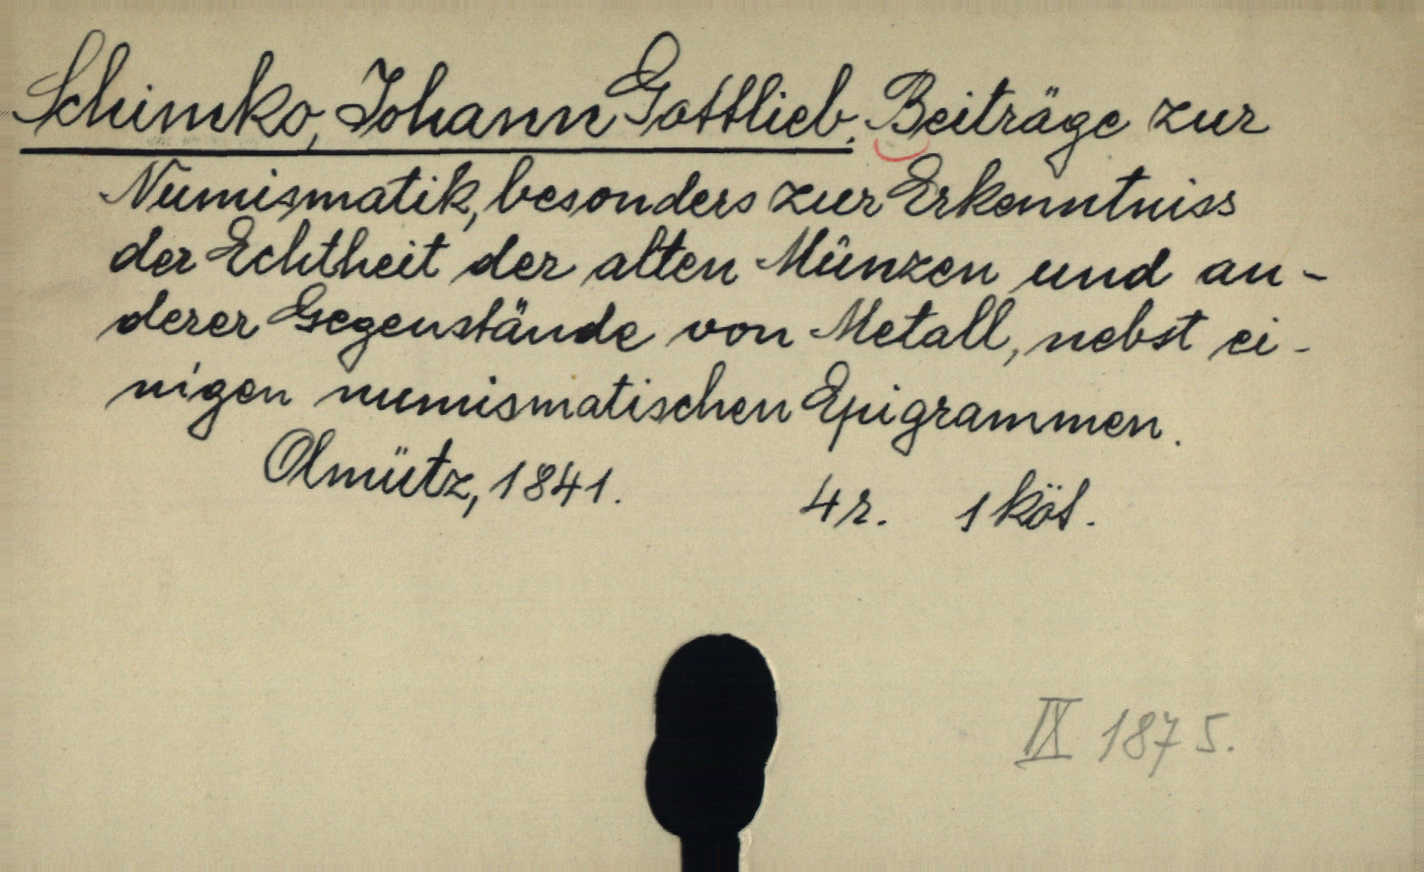 Schimko, Johann Gottlieb. Beiträge zur
Numismatik, besonders zur Erkenntniss
der Echtheit der alten Münzen und an-
derer Gegenstände von Metall, nebst ei-
nigen numismatischen Epigrammen.
Olmütz, 1841. 4r. 1 köt.
IX 1875.